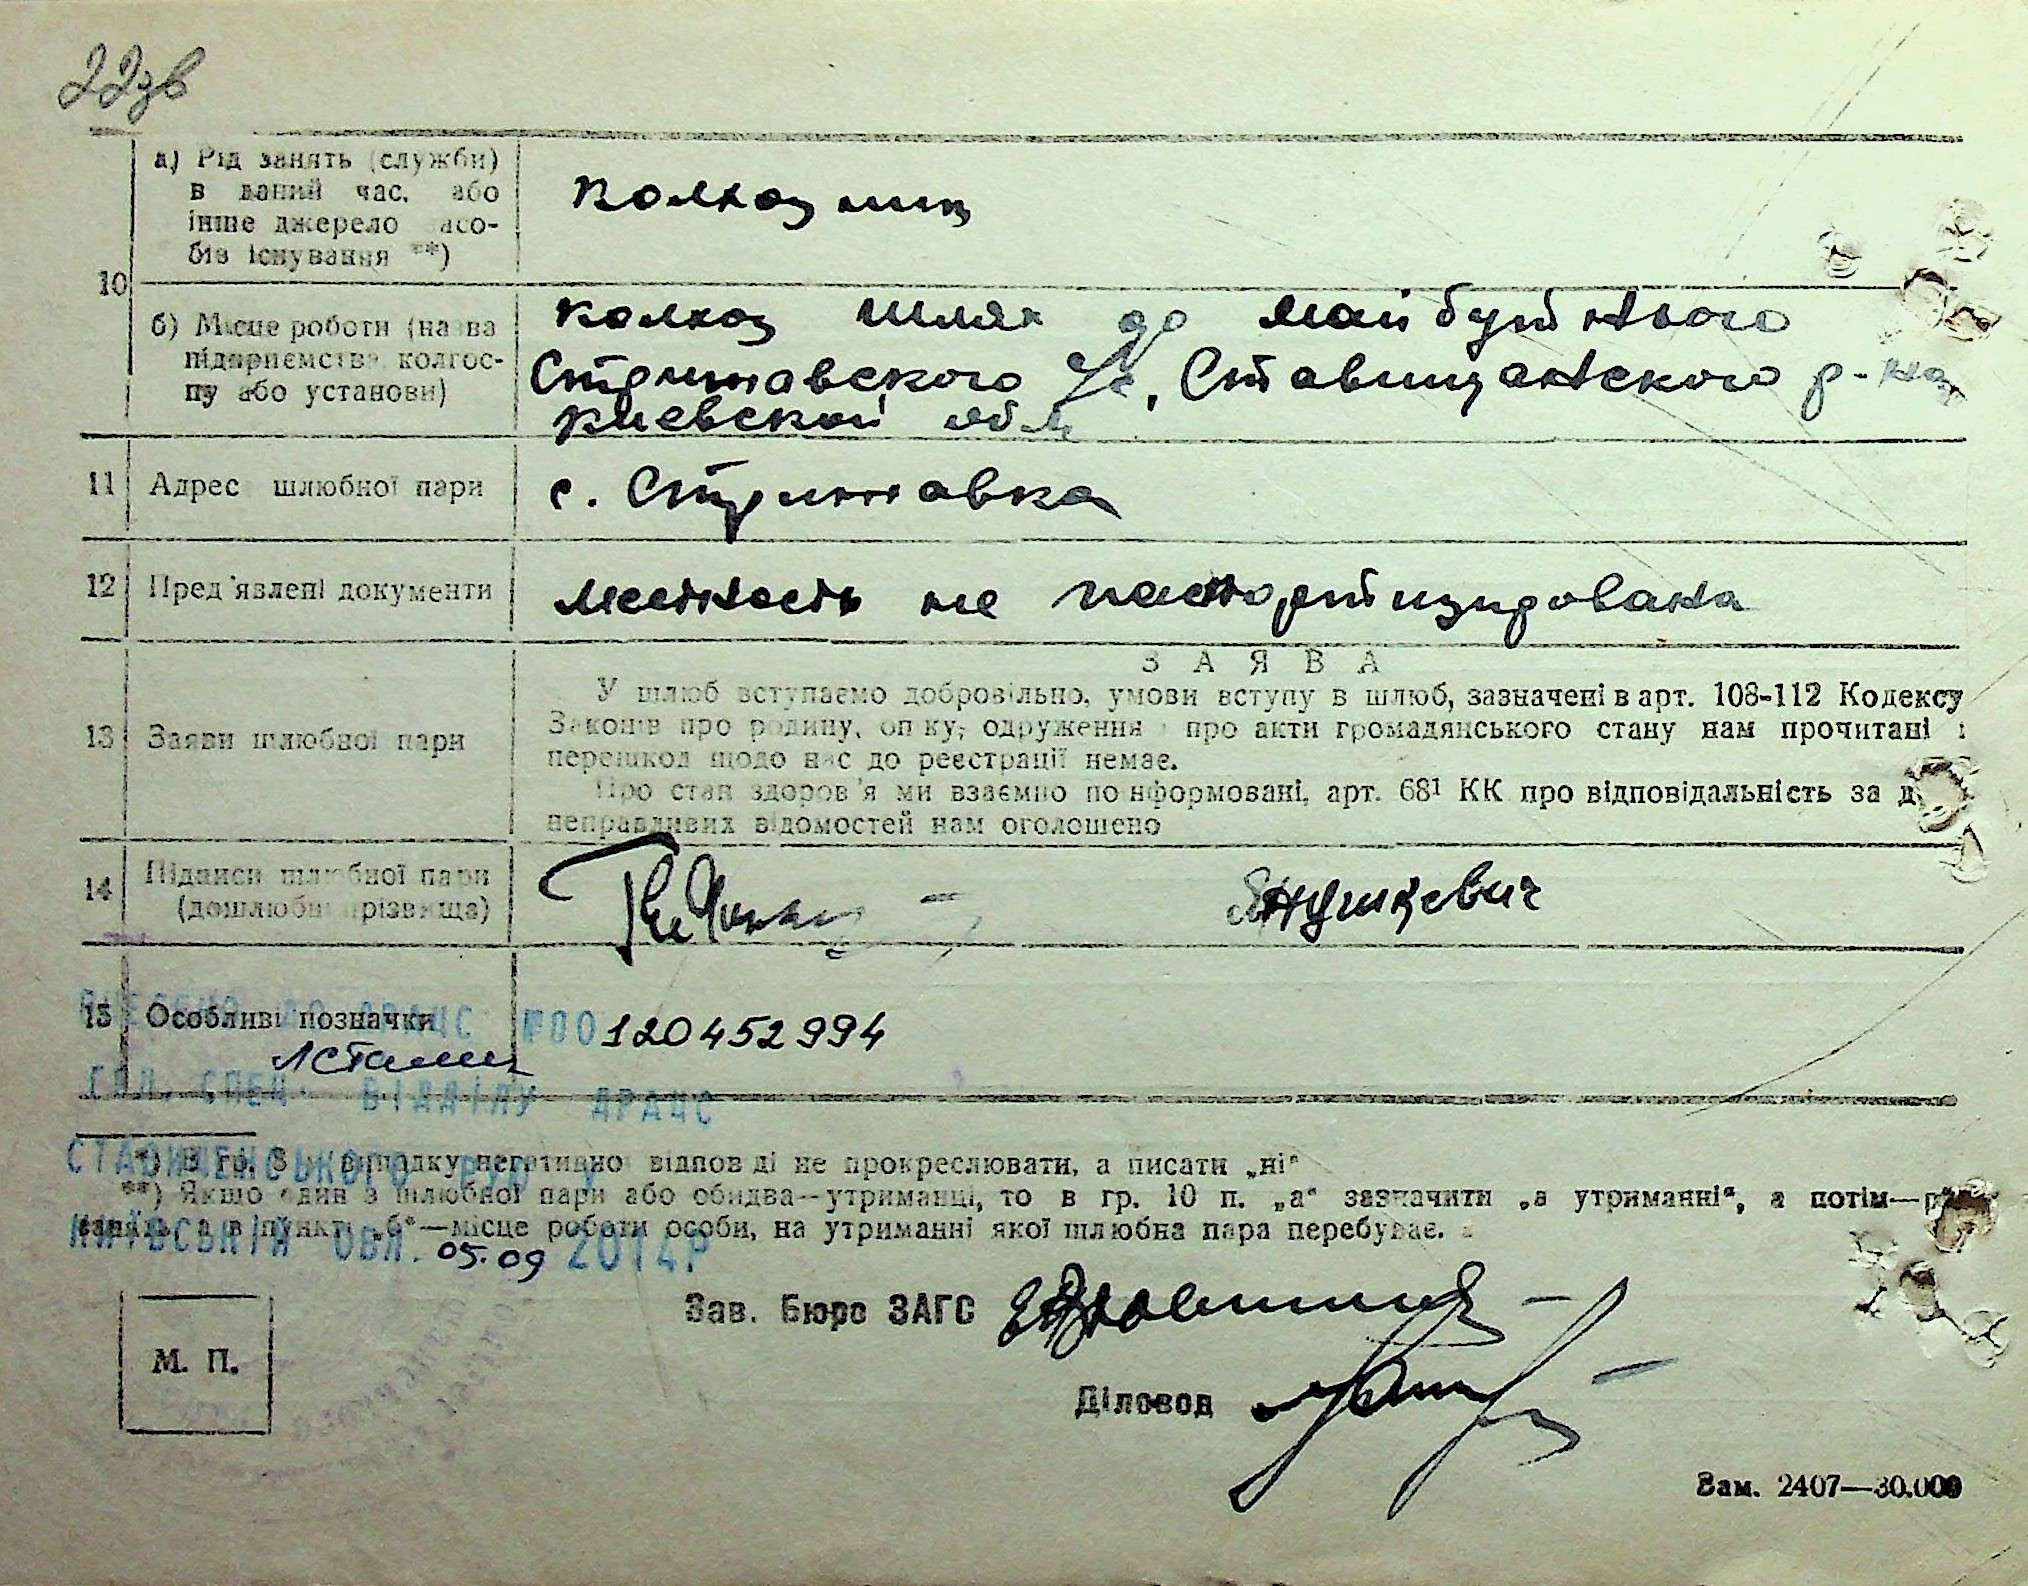 22зв
а) Рід занять (служби)
в даний час, або
інше джерело засо-
бів існування **)
колхозник
10
б) Місце роботи (назва
підприємства, колгос-
пу або установи)
колхоз шлях до майбутнього
Стрижавского с/с, Ставищанского р-на
Киевской обл
11 Адрес шлюбної пари
с. Стрижавка
12 Пред'явлені документи
местность не паспортизирована
13 Заяви шлюбної пари
ЗАЯВА
У шлюб вступаємо добровільно, умови вступу в шлюб, зазначені в арт. 108-112 Кодексу
Законів про родину, опіку, одруження і про акти громадянського стану нам прочитані і
перешкод щодо нас до реєстрації немає.
Про стан здоров'я ми взаємно поінформовані, арт. 68¹ КК про відповідальність за д
неправдивих відомостей нам оголошено
14 Підписи шлюбної пари
(дошлюбні прізвища)
Янушкевич
15 Особливі позначки
ВНЕСЕНО ДО ДРАЦС №00120452994
ГОЛ. СПЕЦ. ВІДДІЛУ ДРАЦС
СТАВИЩЕНСЬКОГО РУЮ У
КИЇВСЬКІЙ ОБЛ. 05.09 2014Р
*) В гр. 8 у випадку негативної відповіді не прокреслювати, а писати „ні“
**) Якщо один з шлюбної пари або обидва—утриманці, то в гр. 10 п. „а“ зазначити „а утриманні“, а потім—рід
занять, а в пункті „б“—місце роботи особи, на утриманні якої шлюбна пара перебуває.
Зав. Бюро ЗАГС
М. П.
Діловод
Зам. 2407—30.000